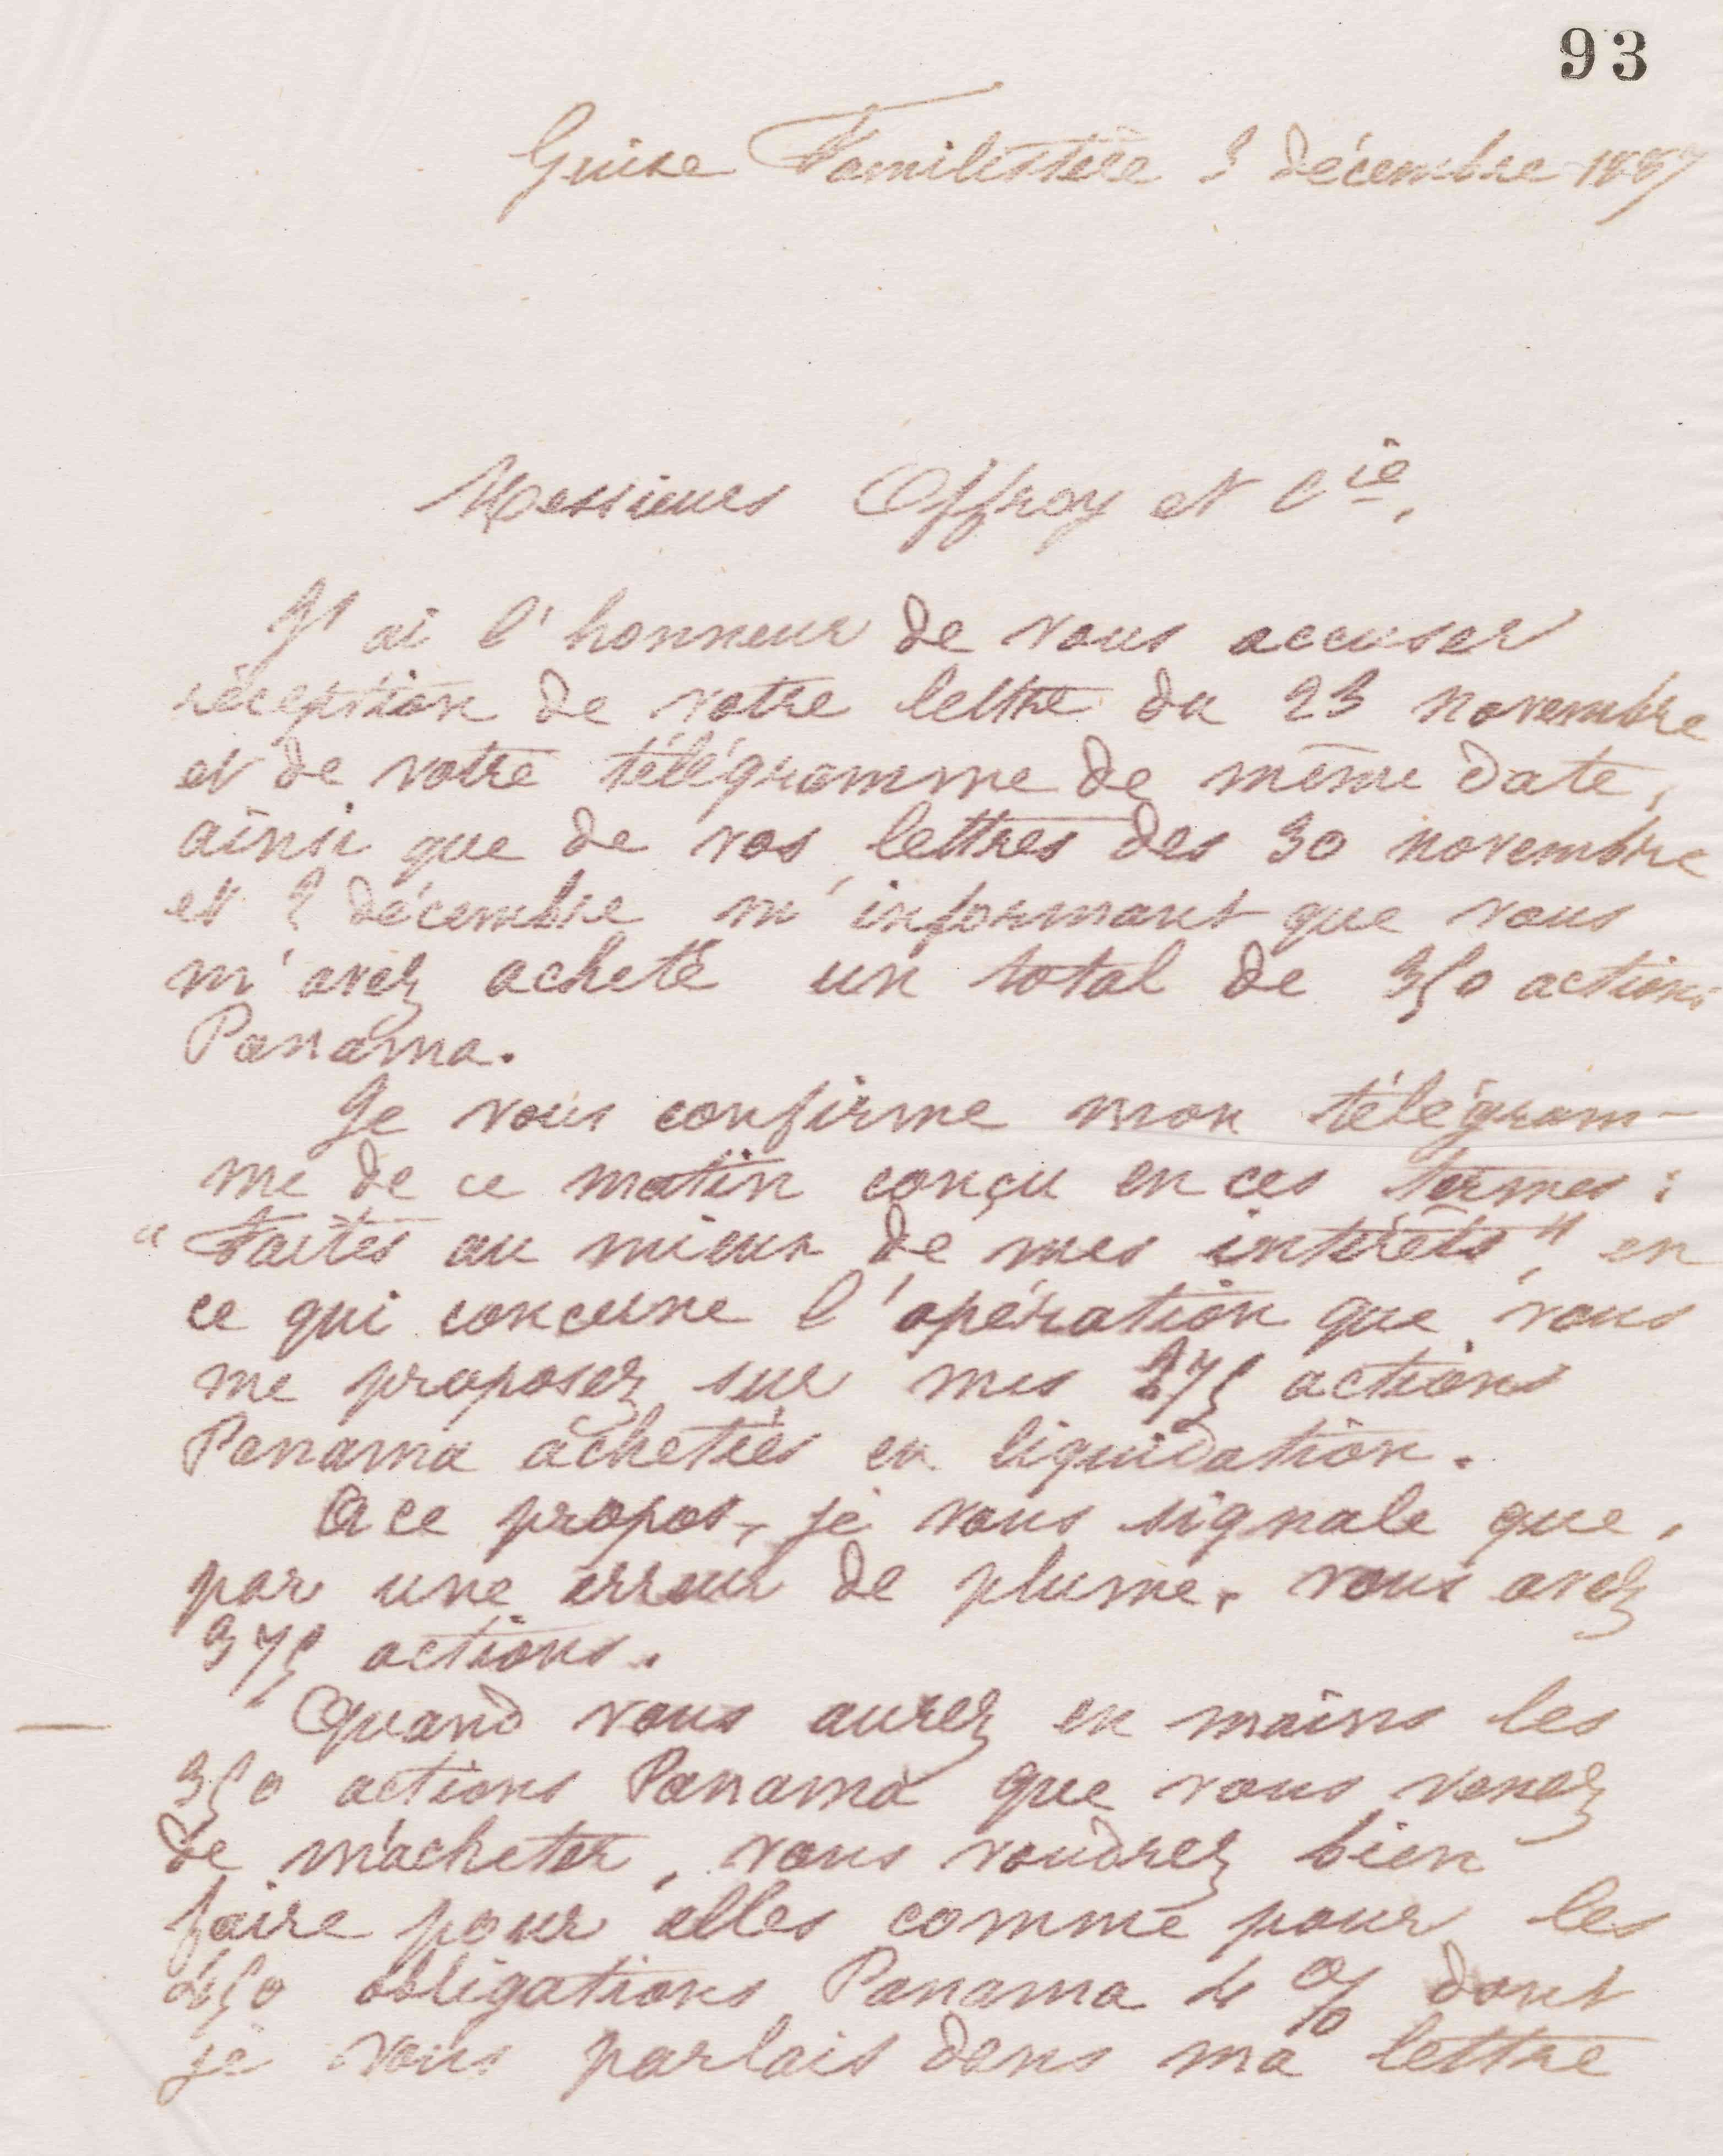 93
Guise Familistère 3 décembre 1887
Messieurs Offroy et Cie,
J'ai l'honneur de vous accuser
réception de votre lettre du 23 novembre
et de votre télégramme de même date,
ainsi que de vos lettres des 30 novembre
et 2 décembre m'informant que vous
m'avez acheté un total de 350 actions
Panama.
Je vous confirme mon télégram-
me de ce matin conçu en ces termes :
" Faites au mieux de mes intérêts ", en
ce qui concerne l'opération que vous
me proposez sur mes 275 actions
Panama achetées en liquidation.
A ce propos, je vous signale que,
par une erreur de plume, vous avez
375 actions.
Quand vous aurez en mains les
350 actions Panama que vous venez
de m'acheter, vous voudrez bien
faire pour elles comme pour les
450 obligations Panama 4 % dont
je vous parlais dans ma lettre